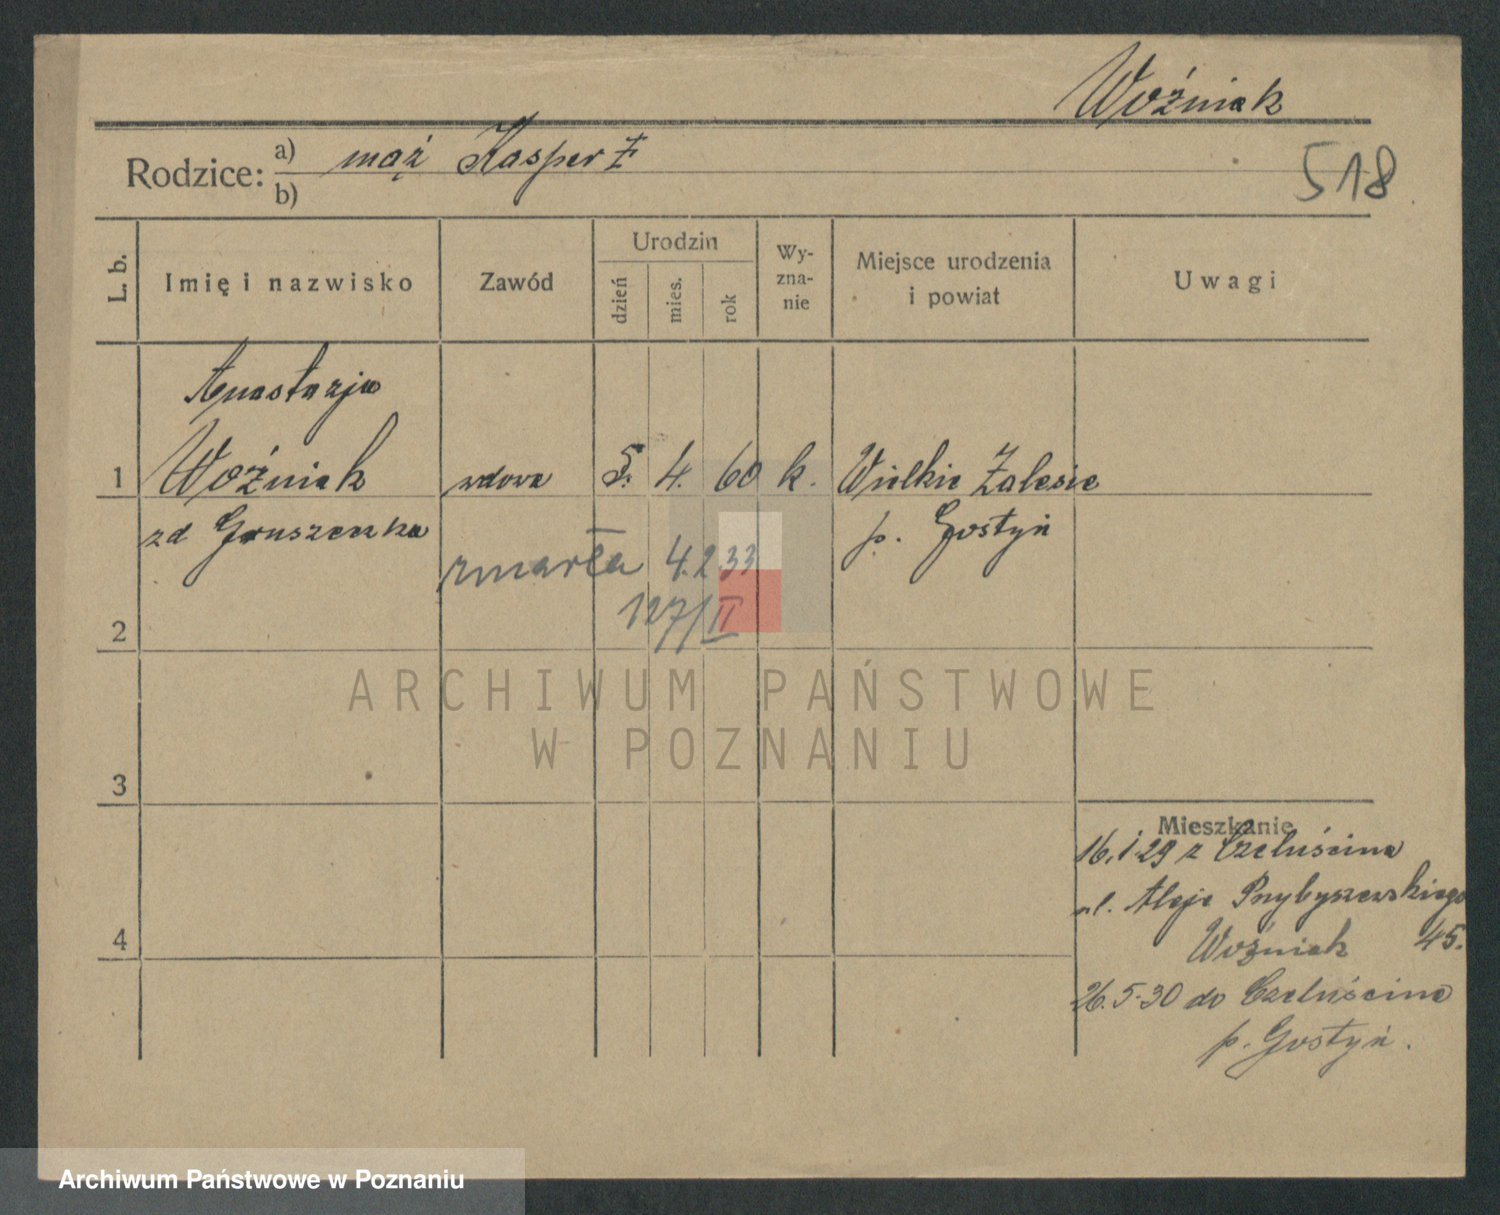 Woźniak
Rodzice: a) mąż Kasper ☨
b)
518
L. b.
Imię i nazwisko
Zawód
Urodzin
dzień
mies.
rok
Wy-
zna-
nie
Miejsce urodzenia
i powiat
Uwagi
Anastazja
1 Woźniak wdowa 5. 4. 60 k. Wielkie Zalesie
zd Gruszczka p. Gostyń
zmarła 4.2.33
127/II
2
ARCHIWUM PAŃSTWOWE
W POZNANIU
3
Mieszkanie
16.1.29 z Czeluścina
ul. Aleje Przybyszewskiego
Woźniak 45.
4
26.5.30 do Czeluścina
p. Gostyń.
Archiwum Państwowe w Poznaniu